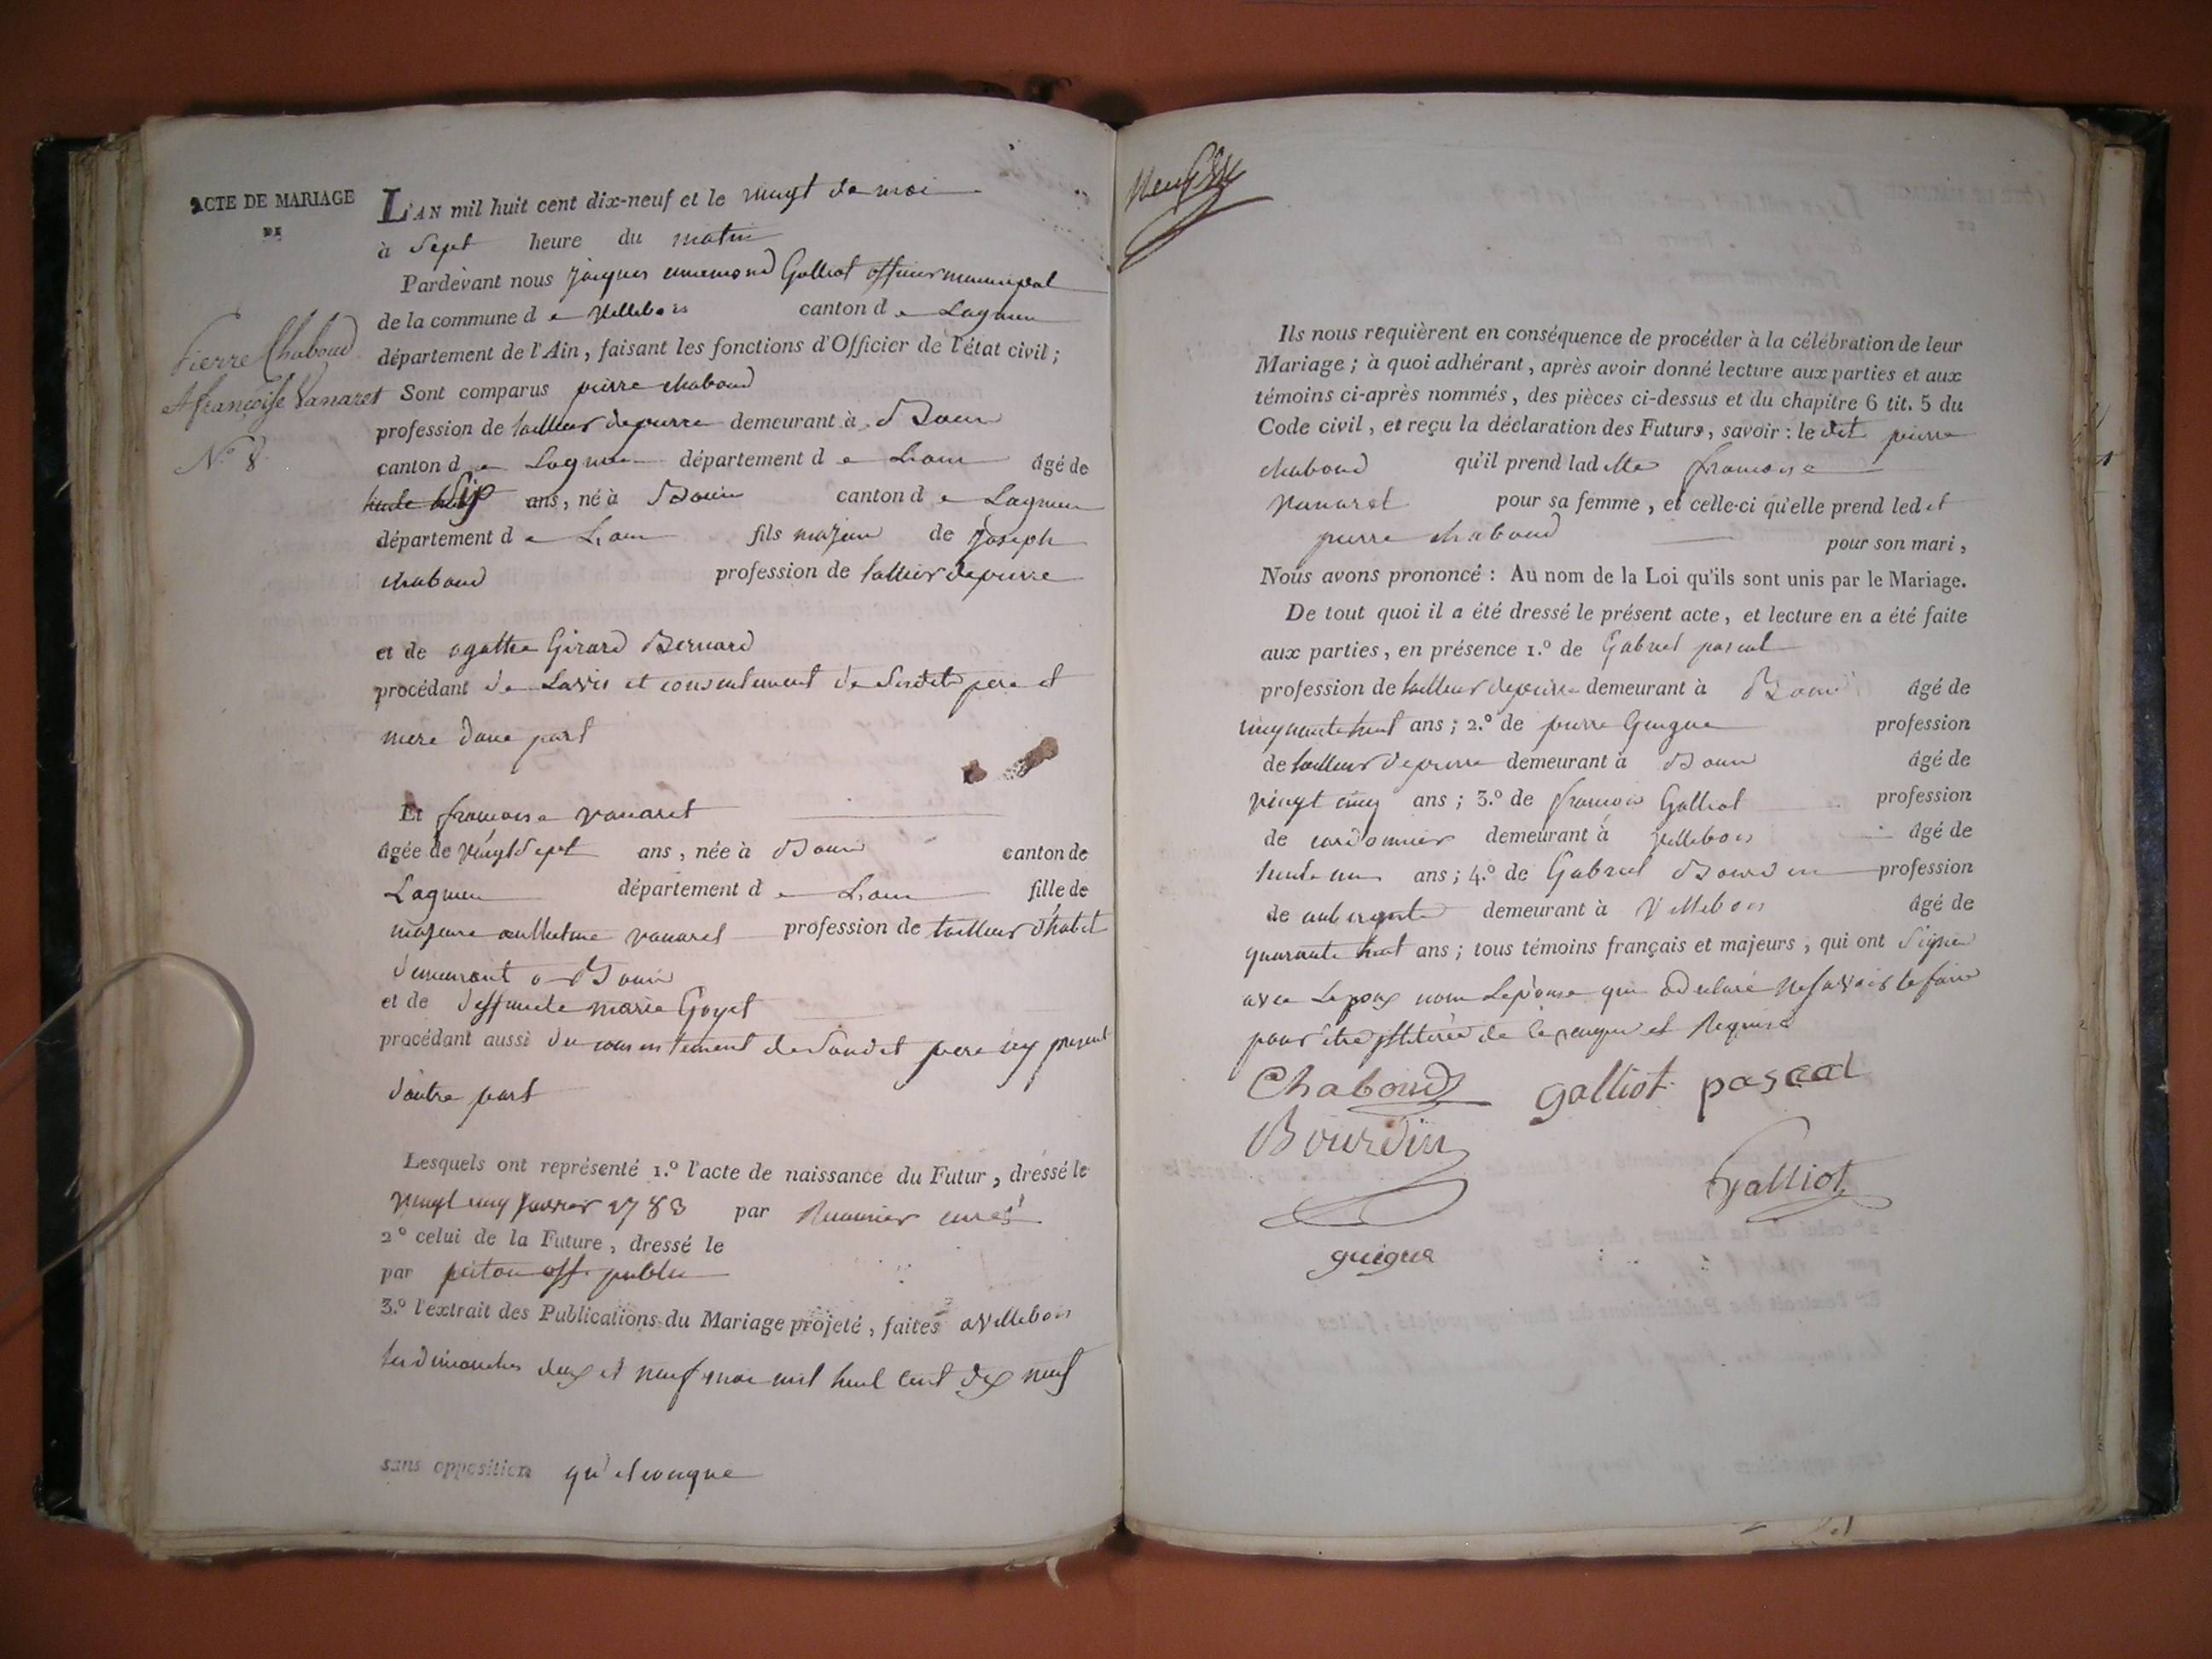 ACTE DE MARIAGE
DE
Pierre Chaboud
& françoise Vanaret
N.º 8.
L'AN mil huit cent dix-neuf et le vingt de mai
à Sept heure du matin
Pardevant nous jacques ennemond Galliot officier municipal
de la commune d e villebois canton d e Lagnieu
département de l'Ain, faisant les fonctions d'Officier de l'état civil;
Sont comparus pierre chaboud
profession de tailleur de pierre demeurant à Bouis
canton d e Lagnieu département d e Lain âgé de
trente Six ans, né à Bouis canton d e Lagnieu
département d e Lain fils majeur de joseph
chaboud profession de tailleur de pierre
et de agathe Girard Bernard
procédant de Lavis et consentement de Sesdits pere et
mere dune part
Et francoise vanaret
âgée de vingt Sept ans, née à Bouis canton de
Lagnieu département d e Lain fille de
majeure anthelme vanaret profession de tailleur dhabit
demeurant a Bouis
et de deffunte marie Goyet
procédant aussi du consentement de Sondit pere icy present
dautre part
Lesquels ont représenté 1.º l'acte de naissance du Futur, dressé le
vingt cinq 1783 par curé
2º celui de la Future, dressé le
par off. public
3.º l'extrait des Publications du Mariage projeté, faites a villebois
les dimanches deux et neuf mai mil huit cent dix neuf
sans opposition qu'elconque
Ils nous requièrent en conséquence de procéder à la célébration de leur
Mariage; à quoi adhérant, après avoir donné lecture aux parties et aux
témoins ci-après nommés, des pièces ci-dessus et du chapitre 6 tit. 5 du
Code civil, et reçu la déclaration des Futurs, savoir: le dit pierre
chaboud qu'il prend lad itte francoise
vanaret pour sa femme, et celle-ci qu'elle prend led it
pierre chaboud pour son mari,
Nous avons prononcé: Au nom de la Loi qu'ils sont unis par le Mariage.
De tout quoi il a été dressé le présent acte, et lecture en a été faite
aux parties, en présence 1.º de Gabriel pascal
profession de tailleur de pierre demeurant à Bouis âgé de
cinquante huit ans; 2.º de pierre Guigue profession
de tailleur de pierre demeurant à Bouis âgé de
vingt cinq ans; 3.º de francois Galliot profession
de cordonnier demeurant à villebois âgé de
trente un ans; 4.º de Gabriel Bourdin profession
de aubergiste demeurant à Villebois âgé de
quarante huit ans; tous témoins français et majeurs, qui ont Signé
avec Lepoux non Lepouse qui a declaré ne savoir le faire
pour être illiterée de ce enquise et Requise
Chaboud galliot pascal
Bourdin
Galliot
guigue